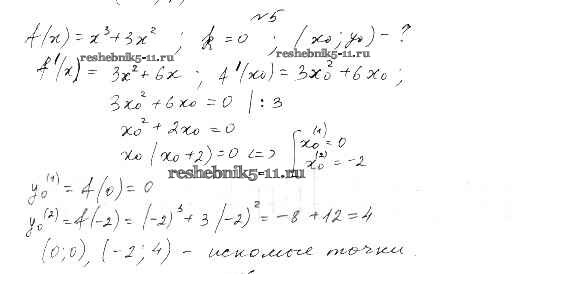 №5
f(x) = x³+3x² ; k = 0 ; (x₀; y₀) - ?
reshebnik5-11.ru reshebnik5-11.ru
f'(x) = 3x²+6x ; f'(x₀) = 3x₀²+6x₀ ;
3x₀²+6x₀ = 0 | : 3
x₀²+2x₀ = 0
x₀(x₀+2) = 0 <=> [ x₀⁽¹⁾ = 0
x₀⁽²⁾ = -2
reshebnik5-11.ru
y₀⁽¹⁾ = f(0) = 0
y₀⁽²⁾ = f(-2) = (-2)³ + 3(-2)² = -8 + 12 = 4
(0;0), (-2; 4) - искомые точки.